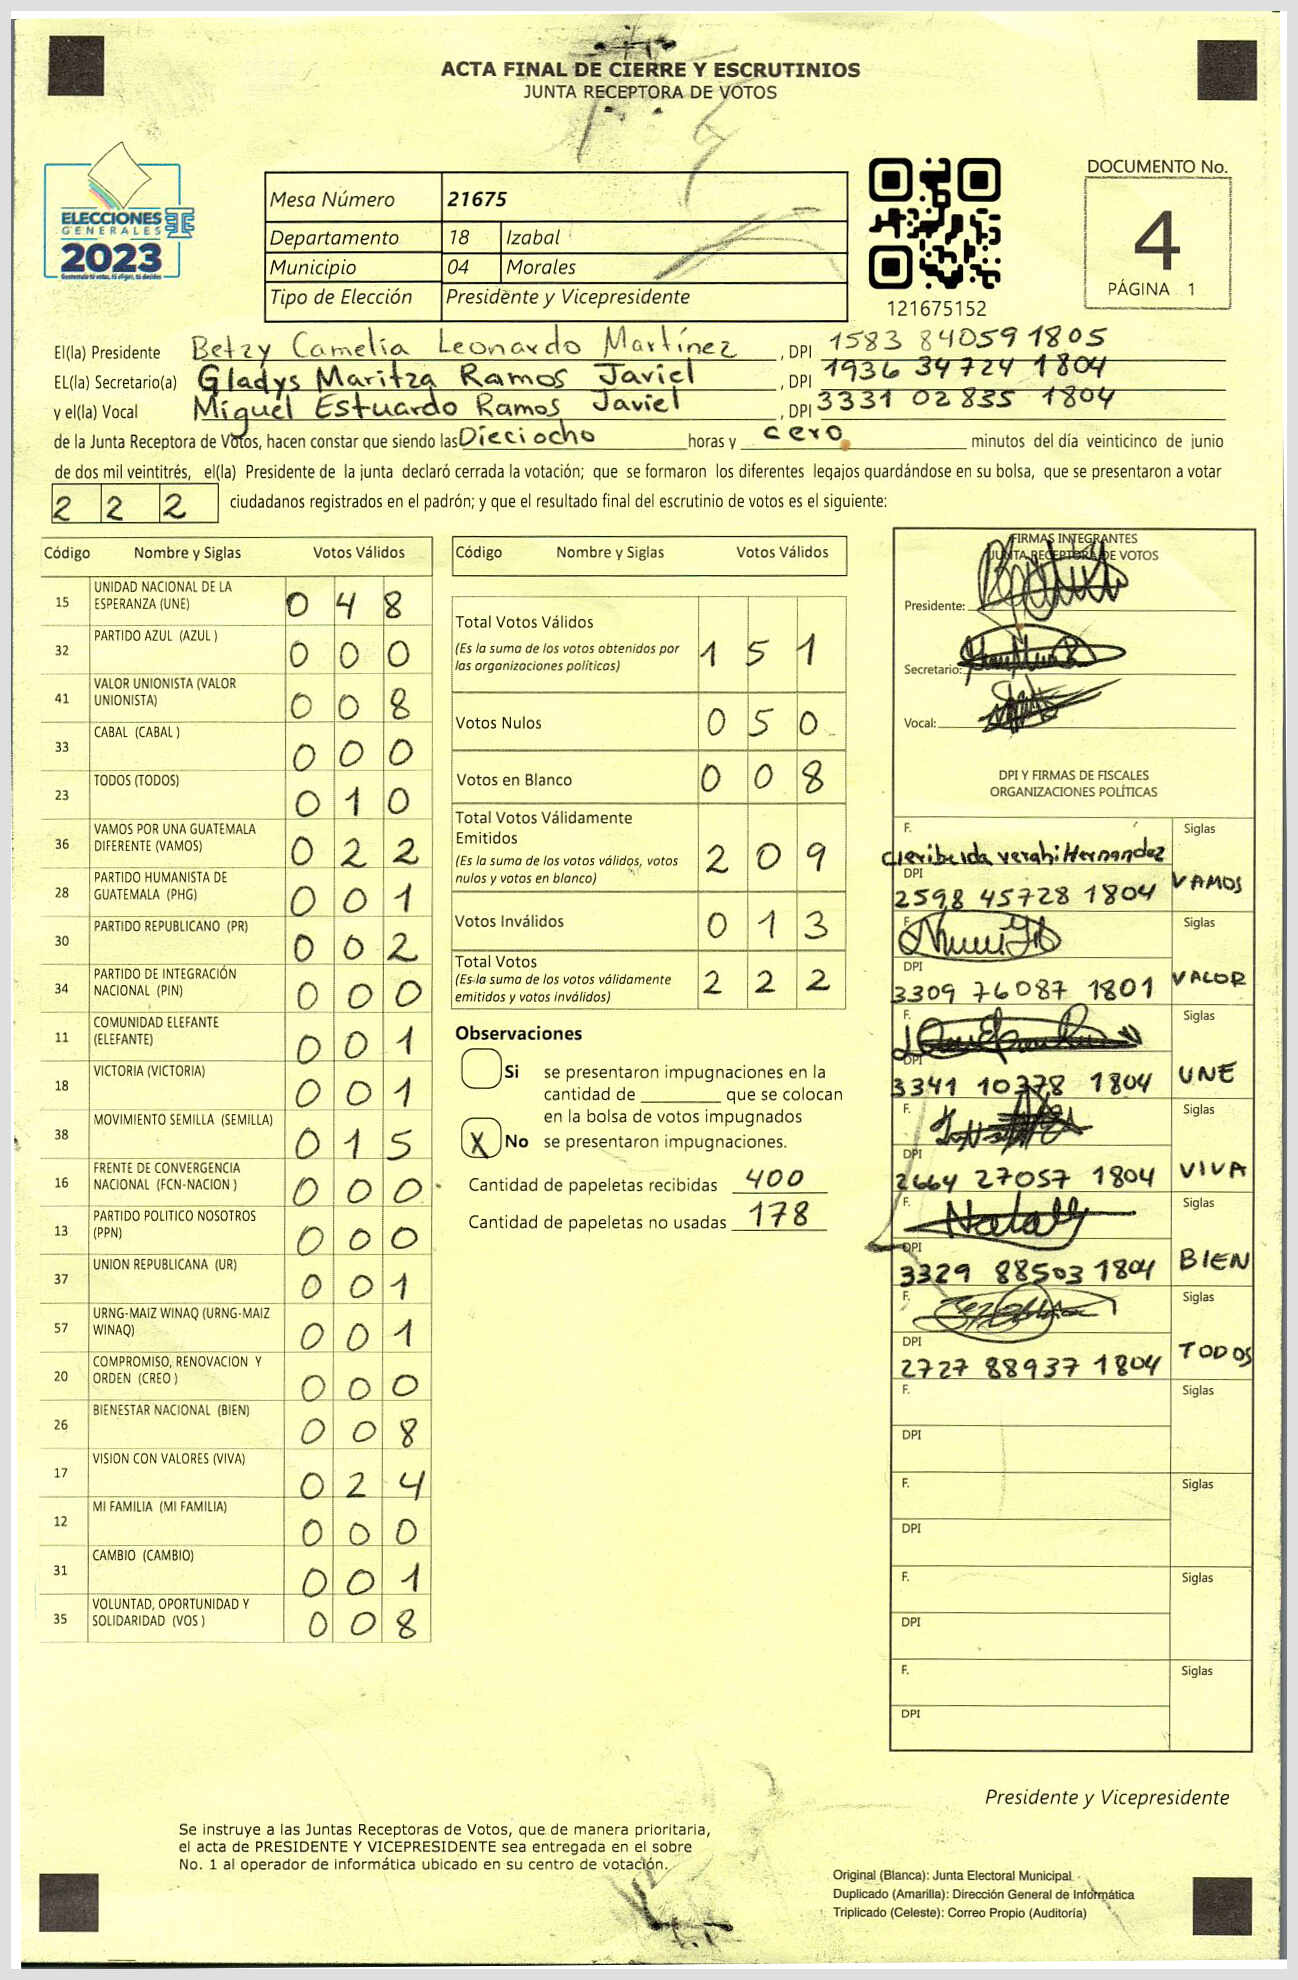 ACTA FINAL DE CIERRE Y ESCRUTINIOS
JUNTA RECEPTORA DE VOTOS
ELECCIONES
GENERALES
2023
Mesa Número 21675
Departamento 18 Izabal
Municipio 04 Morales
Tipo de Elección Presidente y Vicepresidente
121675152
DOCUMENTO No.
4
PÁGINA 1
El(la) Presidente Betzy Camelia Leonardo Martínez , DPI 1583 84059 1805
EL(la) Secretario(a) Gladys Maritza Ramos Javiel , DPI 1936 34724 1804
y el(la) Vocal Miguel Estuardo Ramos Javiel , DPI 3331 02835 1804
de la Junta Receptora de Votos, hacen constar que siendo las Dieciocho horas y cero minutos del día veinticinco de junio
de dos mil veintitrés, el(la) Presidente de la junta declaró cerrada la votación; que se formaron los diferentes legajos guardándose en su bolsa, que se presentaron a votar
2 2 2 ciudadanos registrados en el padrón; y que el resultado final del escrutinio de votos es el siguiente:
Código Nombre y Siglas Votos Válidos
15 UNIDAD NACIONAL DE LA ESPERANZA (UNE) 0 4 8
32 PARTIDO AZUL (AZUL ) 0 0 0
41 VALOR UNIONISTA (VALOR UNIONISTA) 0 0 8
33 CABAL (CABAL ) 0 0 0
23 TODOS (TODOS) 0 1 0
36 VAMOS POR UNA GUATEMALA DIFERENTE (VAMOS) 0 2 2
28 PARTIDO HUMANISTA DE GUATEMALA (PHG) 0 0 1
30 PARTIDO REPUBLICANO (PR) 0 0 2
34 PARTIDO DE INTEGRACIÓN NACIONAL (PIN) 0 0 0
11 COMUNIDAD ELEFANTE (ELEFANTE) 0 0 1
18 VICTORIA (VICTORIA) 0 0 1
38 MOVIMIENTO SEMILLA (SEMILLA) 0 1 5
16 FRENTE DE CONVERGENCIA NACIONAL (FCN-NACION ) 0 0 0
13 PARTIDO POLITICO NOSOTROS (PPN) 0 0 0
37 UNION REPUBLICANA (UR) 0 0 1
57 URNG-MAIZ WINAQ (URNG-MAIZ WINAQ) 0 0 1
20 COMPROMISO, RENOVACION Y ORDEN (CREO ) 0 0 0
26 BIENESTAR NACIONAL (BIEN) 0 0 8
17 VISION CON VALORES (VIVA) 0 2 4
12 MI FAMILIA (MI FAMILIA) 0 0 0
31 CAMBIO (CAMBIO) 0 0 1
35 VOLUNTAD, OPORTUNIDAD Y SOLIDARIDAD (VOS ) 0 0 8
Código Nombre y Siglas Votos Válidos
Total Votos Válidos
(Es la suma de los votos obtenidos por las organizaciones políticas) 1 5 1
Votos Nulos 0 5 0
Votos en Blanco 0 0 8
Total Votos Válidamente Emitidos
(Es la suma de los votos válidos, votos nulos y votos en blanco) 2 0 9
Votos Inválidos 0 1 3
Total Votos
(Es la suma de los votos válidamente emitidos y votos inválidos) 2 2 2
Observaciones
Si se presentaron impugnaciones en la
cantidad de ________ que se colocan
en la bolsa de votos impugnados
X No se presentaron impugnaciones.
Cantidad de papeletas recibidas 400
Cantidad de papeletas no usadas 178
FIRMAS INTEGRANTES
JUNTA RECEPTORA DE VOTOS
Presidente:
Secretario:
Vocal:
DPI Y FIRMAS DE FISCALES
ORGANIZACIONES POLÍTICAS
F. Siglas
Hernandez
DPI 2598 45728 1804 VAMOS
F. Siglas
DPI 3309 76087 1801 VALOR
F. Siglas
DPI 3341 10378 1804 UNE
F. Siglas
DPI 2664 27057 1804 VIVA
F. Siglas
DPI 3329 88503 1804 BIEN
F. Siglas
DPI 2727 88937 1804 TODOS
F. Siglas
DPI
F. Siglas
DPI
F. Siglas
DPI
F. Siglas
DPI
Presidente y Vicepresidente
Se instruye a las Juntas Receptoras de Votos, que de manera prioritaria,
el acta de PRESIDENTE Y VICEPRESIDENTE sea entregada en el sobre
No. 1 al operador de informática ubicado en su centro de votación.
Original (Blanca): Junta Electoral Municipal
Duplicado (Amarilla): Dirección General de Informática
Triplicado (Celeste): Correo Propio (Auditoría)